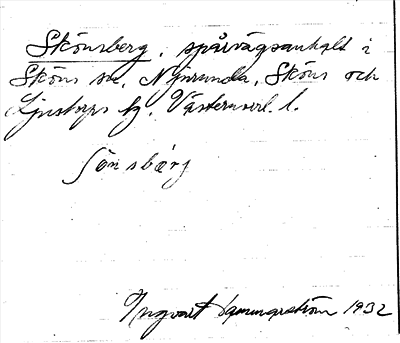 Skönsberg, spårvägsanhalt i
Sköns sn, Njurunda, Sköns och
Ljustorps tg, Västernorrl. l.
ʃönsbærj
Ingvart Hemmingström 1932